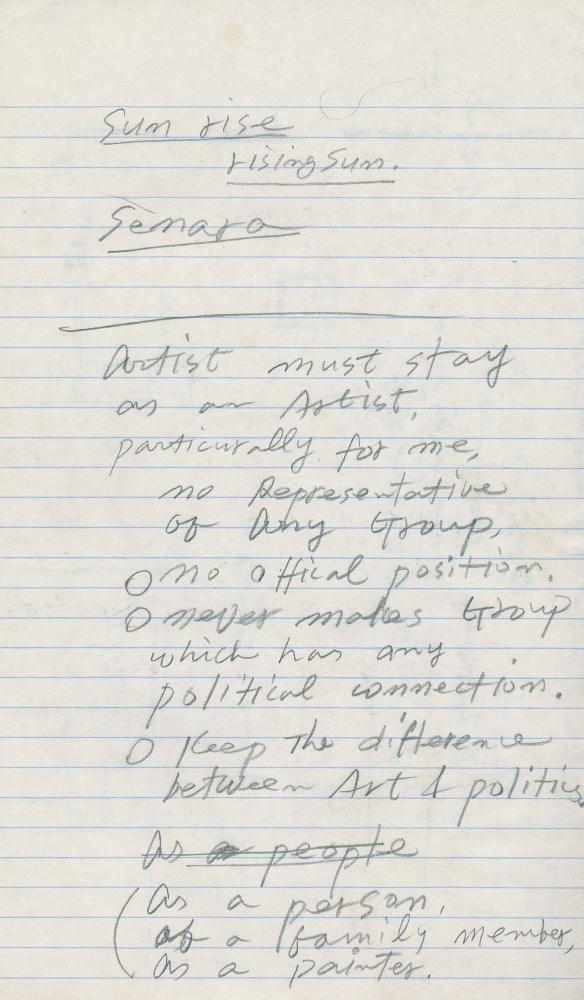 Sun rise
rising Sun.
Senara
Artist must stay
as an Artist,
particurally for me,
no Representative
of Any Group,
O no offical position.
O never makes Group
which has any
political connection.
O Keep the difference
between Art & politics
As a people
(as a person,
as a family member,
as a painter.